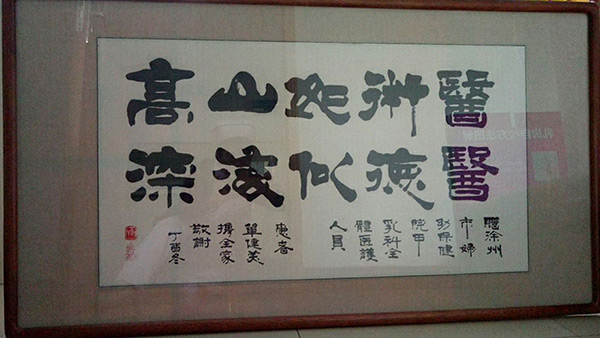 醫術比山高
醫德似海深
贈徐州
市婦
幼保健
院甲
乳科全
體醫護
人員
患者
單建美
攜全家
敬謝
丁酉冬